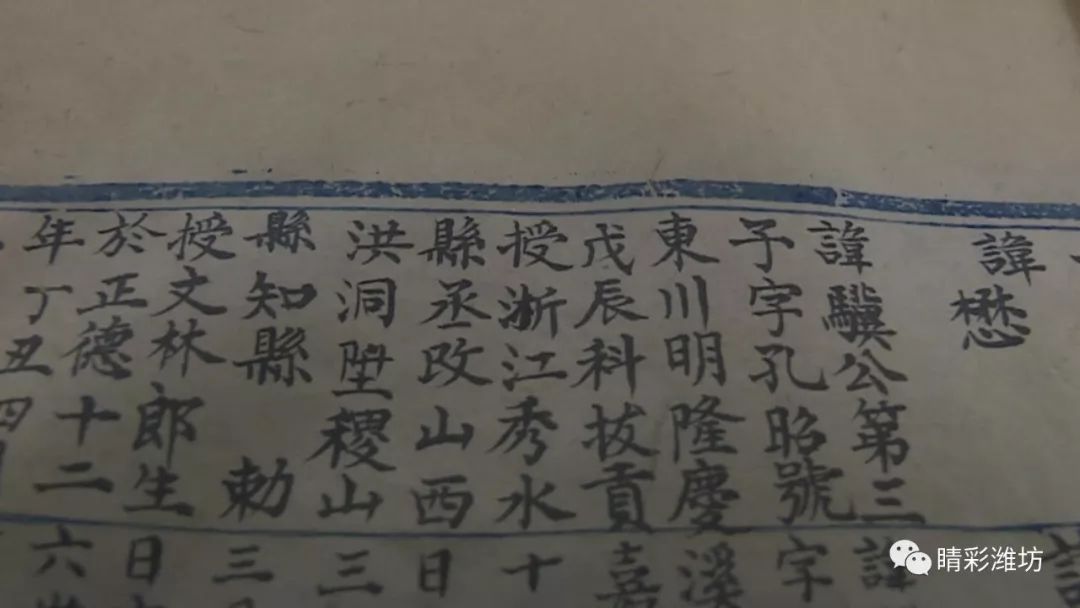 諱
懋
諱驥公第三
子字孔昭號
東川明隆慶
戊辰科拔貢
授浙江秀水
縣丞改山西
洪洞陞稷山
縣知縣 勅
授文林郎生
於正德十二
年丁丑四
諱
字
溪
嘉
十
日
三
三
日
六
睛彩潍坊